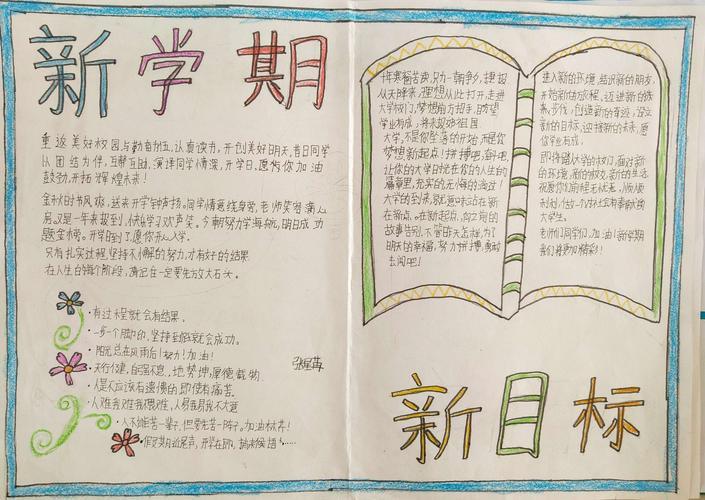 新学期
重返美好校园与勤奋为伍,认真读书,开创美好明天,昔日同学
以团结为伴,互帮互助,演绎同学情深,开学日,愿为你加油
鼓劲,开拓辉煌未来!
金秋时节风爽,送来开学钟声扬。同学情意绕身旁,老师笑容满心
房。又是一年来报到,快乐学习欢声笑。今朝努力学海航,明日成功
题金榜。开学日到了愿你开心入学。
只有扎实过程,坚持不懈的努力,才有好的结果
在人生的每个阶段,请记住一定要先放大石头。
·有过程就会有结果。
·一步一个脚印的,坚持到底就会成功。
·阳光总在风雨后!努力!加油!
·天行健,自强不息,地势坤,厚德载物
·人是不应该有遗憾的即使有痛苦。
·人难我难我不畏难,人易我易我不大意
·人不能苦一辈子,但要先苦一阵子。加油林荞!
·假期近尾声,开学在即
新目标
十年寒窗苦声,只为一朝
从天降来,理想从此打开,走进
大学校门,梦想
学业有成,将来报效祖国
大学,不是你坠落的开始,而是你
梦想新起点!拼搏吧,新吧,
让你的大学时光在你的人生的
篇章里,充实的无悔的渡过!
大学的到来,就意味站在新
在新点。在新起点,向之前的
故事告别,不管昨天怎样,为了
明天的幸福,努力拼搏,勇敢
去闯吧!
进入新的环境,结识新的朋友,
开始新的旅程,迈进新的
步伐,创造新的奇迹,设立
新的目标,迎接新的未来,愿
你学业有成,
即将踏大学的校门,面对新
的环境,新的校友,新的生活
祝愿你们的程无休止,顺顺
利利,做一个对社会有贡献的
大学生。
老师们同学们,加油!新学期
我们将更加精彩!